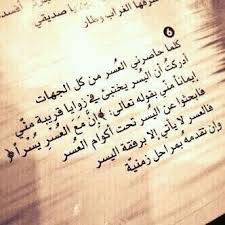 صديقي
كلما حاصرني العُسر من كل الجهات
أدركتُ أن اليُسر يختبئ في زوايا قريبة منّي
إيماناً منّي بقوله تعالى: ﴿إنّ مَعَ العُسْرِ يُسْراً﴾
فابحثوا عن اليُسر تحت أكوام العُسر
فالعسر لا يأتي إلا برفقة اليسر
وإن تقدمه بمراحل زمنيّة